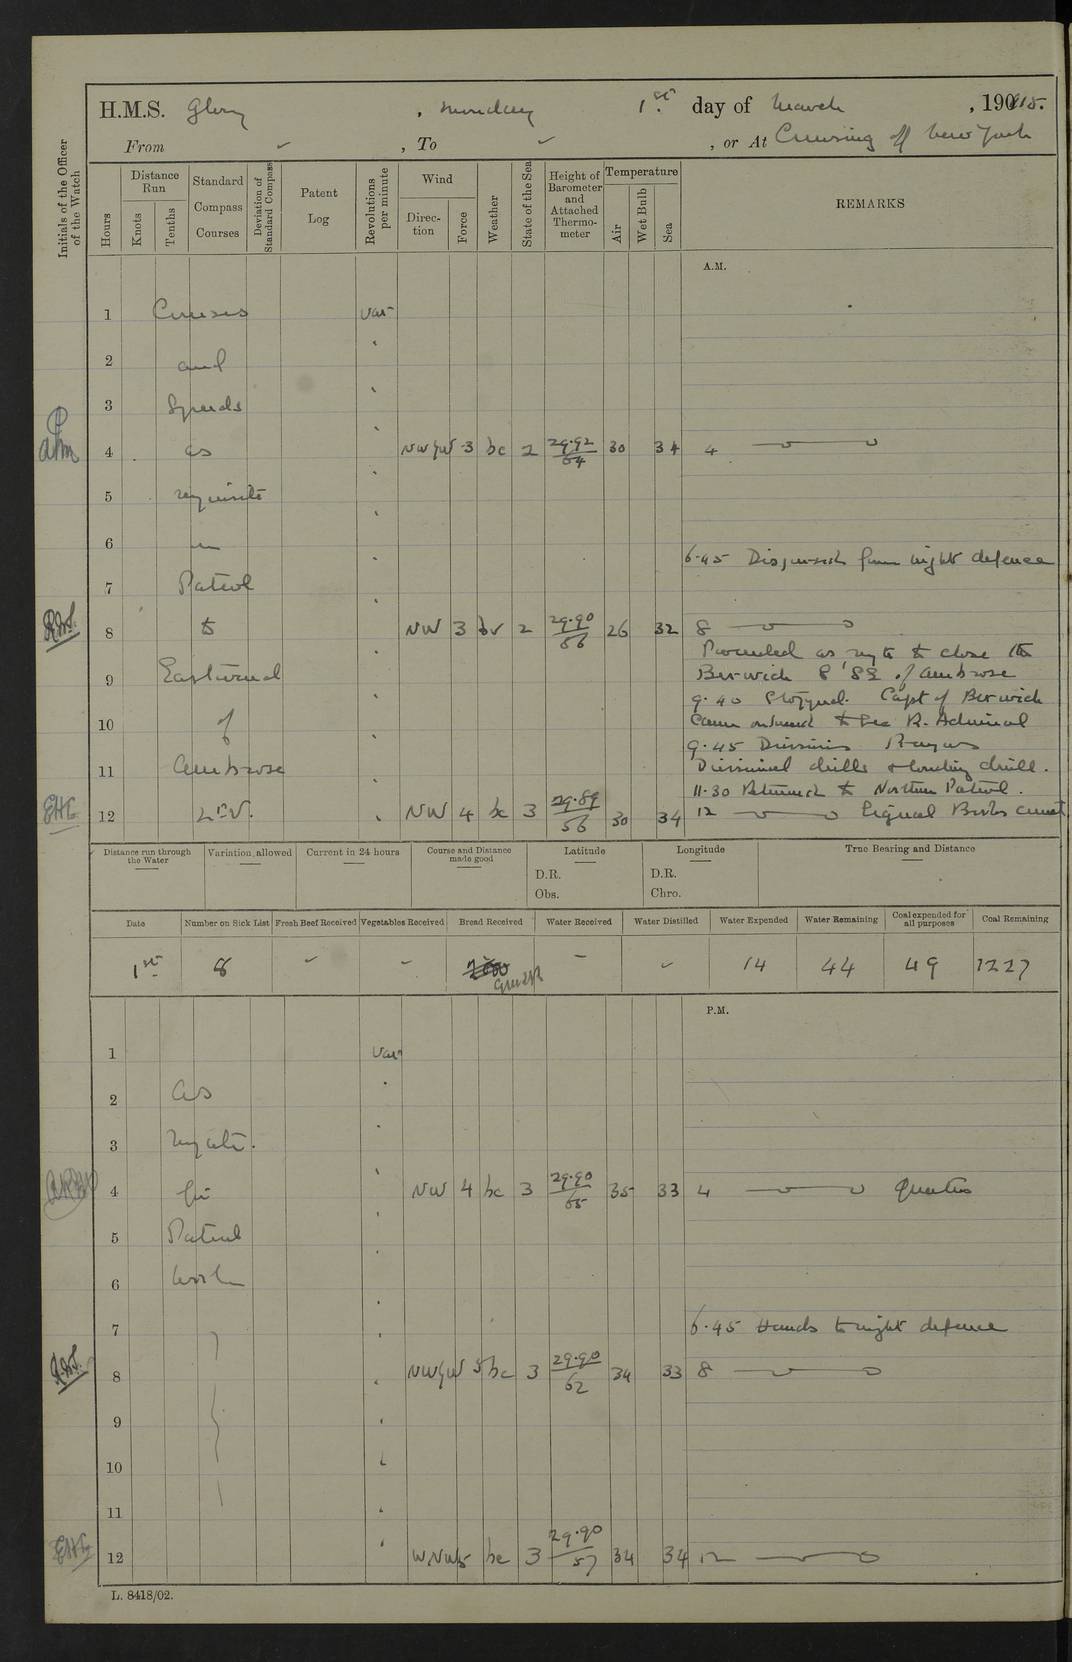 H.M.S. Glory , Monday 1st day of March , 1901915.
From ✓ , To ✓ , or At Cruising off New York
Initials of the Officer of the Watch
Hours
Distance Run
Knots
Tenths
Standard Compass Courses
Deviation of Standard Compass
Patent Log
Revolutions per minute
Wind
Direction
Force
Weather
State of the Sea
Height of Barometer and Attached Thermometer
Temperature
Air
Wet Bulb
Sea
REMARKS
A.M.
1 Courses var
2 and
3 Speeds
4 as NWyW 3 bc 2 29.92 64 30 34 4
5 requisite
6 in
6.45 Dispersed from night defence
7 Patrol
8 to NW 3 bv 2 29.90 56 26 32 8
Proceeded as reqte to close the
9 Eastward Berwick 8' S8E of Ambrose
9.40 Stopped. Capt of Berwick
10 of came onboard to see R. Admiral
9.45 Divisions Prayers
11 Ambrose Divisional drills & loading drill.
11.30 Returned to Northern Patrol.
EHG 12 L.V. NW 4 bc 3 29.89 56 30 34 12 Signal Books correct
Distance run through the Water
Variation allowed
Current in 24 hours
Course and Distance made good
Latitude
D.R.
Obs.
Longitude
D.R.
Chro.
True Bearing and Distance
Date
Number on Sick List
Fresh Beef Received
Vegetables Received
Bread Received
Water Received
Water Distilled
Water Expended
Water Remaining
Coal expended for all purposes
Coal Remaining
1st 8 14 44 49 1227
P.M.
1 var
2 as
3 reqte.
4 for NW 4 bc 3 29.90 65 35 33 4 Quarters
5 Patrol
6 work
7 6.45 Hands to night defence
8 NWyW 5 bc 3 29.90 62 34 33 8
9
10
11
EHG 12 WNW 5 bc 3 29.90 57 34 34 12
L. 8418/02.